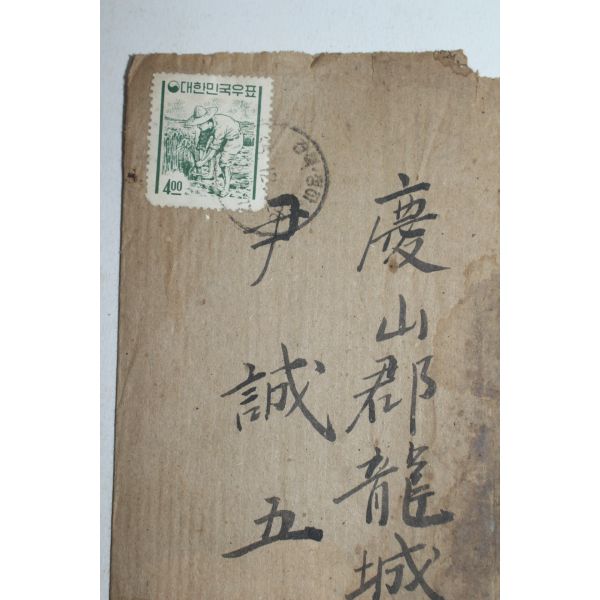 대한민국우표
4.00
慶山郡龍城
尹誠五